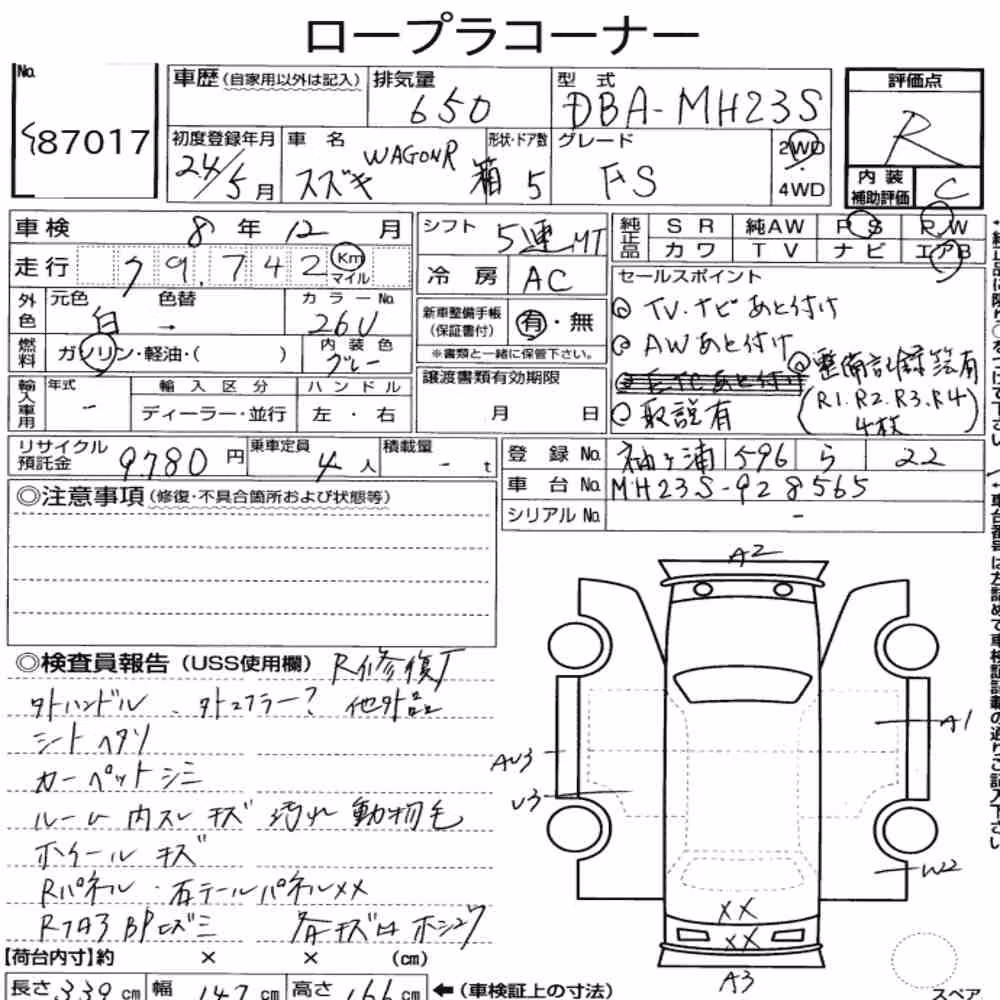 ロープラコーナー
No.
87017
車歴 (自家用以外は記入)
排気量
650
型式
DBA-MH23S
評価点
R
初度登録年月
24/5月
車名
スズキ WAGONR
形状・ドア数
箱 5
グレード
FS
2WD
4WD
内装補助評価
C
車検 8年 12月
シフト 5速MT
純正品 SR 純AW PS PW
カワ TV ナビ エアB
走行 79,742 Km マイル
冷房 AC
セールスポイント
TV・ナビあと付け
AWあと付け
整備記録簿有
(R1.R2.R3.R4)
4枚
取説有
外色 元色 白 色替 → カラーNo. 26U
新車整備手帳(保証書付) 有・無
※書類と一緒に保管下さい。
燃料 ガソリン・軽油・( )
内装色 グレー
輸入車用 年式 - 輸入区分 ハンドル
ディーラー・並行 左・右
譲渡書類有効期限
月 日
リサイクル預託金 9780円
乗車定員 4人
積載量 - t
登録No. 袖ヶ浦 596 ら 22
車台No. MH23S-928565
シリアルNo. -
◎注意事項 (修復・不具合箇所および状態等)
◎検査員報告 (USS使用欄) R修復歴
外ハンドル、外ミラー? 他外品
シートヘタリ
カーペットシミ
ルーム内スレ キズ 汚れ 動物毛
ホイール キズ
Rパネル・右テールパネルXX
Rフロア BPヒズミ 各キズ凹 ホシュウ
A2
A1
AU3
U3
W2
XX
XX
A3
スペア
【荷台内寸】約 × × (cm)
長さ 339 cm 幅 147 cm 高さ 166 cm ←(車検証上の寸法)